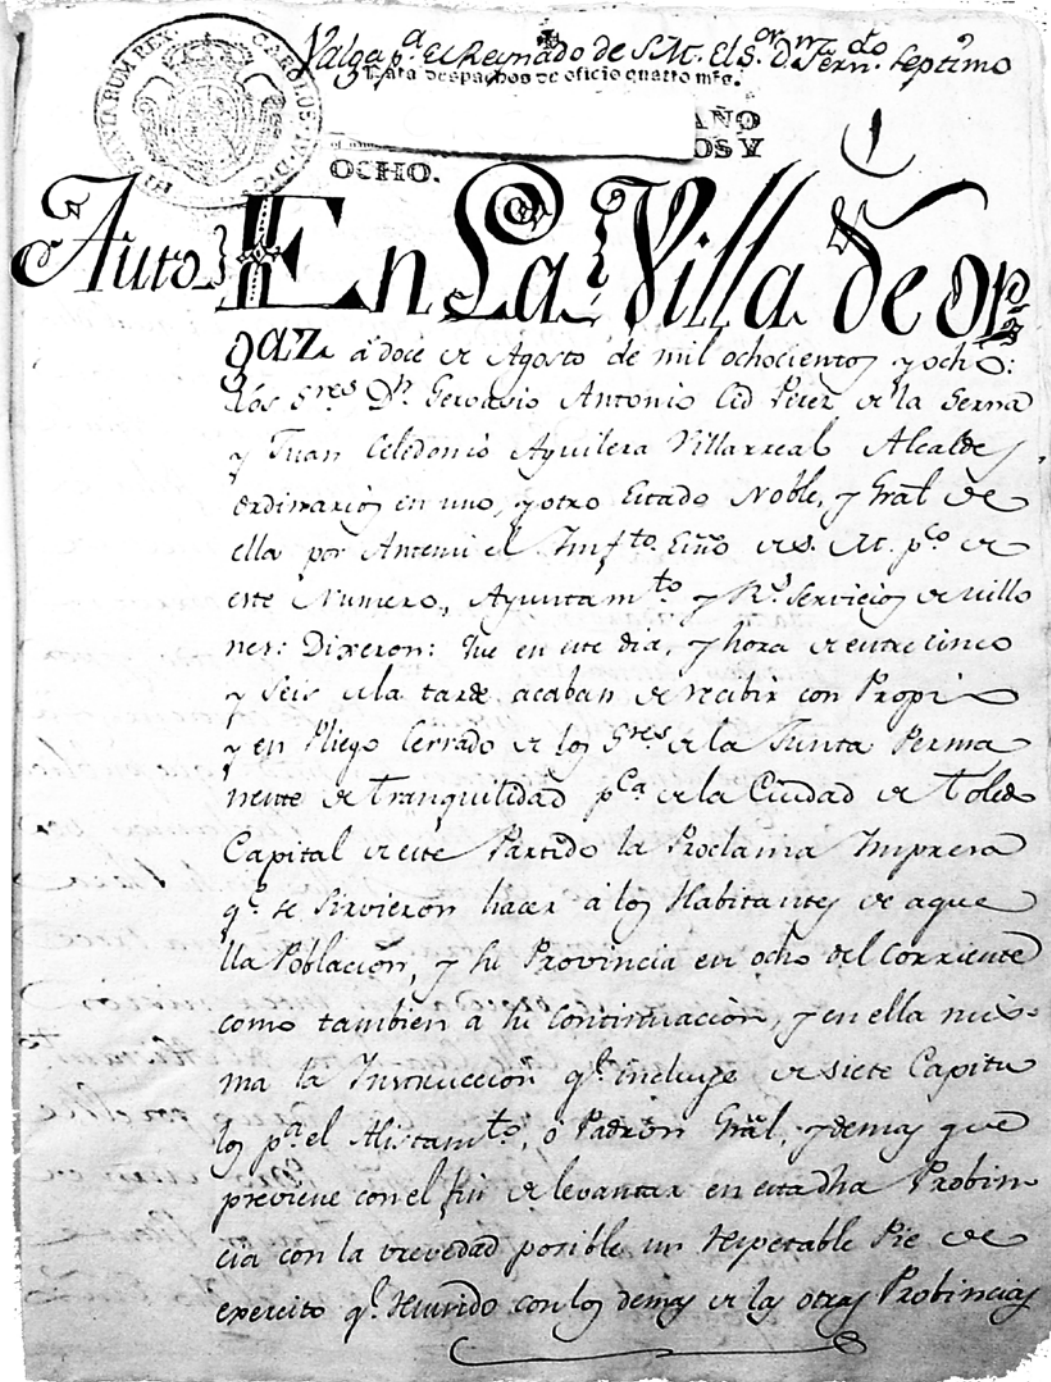 Valga pa. El Reynado de S.M. El Sor. D. Ferndo. Septimo
Para despachos de oficio quatro mrs.
HISPANIARUM REX. CAROLUS IV D.G.
AÑO
OS Y
OCHO.
1
Auto
En La Villa de Or
gaz a doce de Agosto de mil ochocientos y ocho:
Los Sres. Dn. Gervasio Antonio Cid Perez de la Serna
y Juan Celedonio Aguilera Villarreal Alcaldes
ordinarios en uno, y otro Estado Noble, y Gral de
ella por Antemi el Infto. Eño de S. M. pco. de
este Numero, Ayuntamto. y Rs. Servicios de millo
nes: Dixeron: Que en este dia, y hora de entre cinco
y seis de la tarde acaban de recibir con Propio
y en Pliego Cerrado de los Sres. de la Junta Perma
nente de Tranquilidad pca. de la Ciudad de Toledo
Capital de este Partido la Proclama Impresa
qe. se sirvieron hacer a los Habitantes de aque
lla Poblacion, y su Provincia en ocho del corriente
como tambien a su continuacion, y en ella mis-
ma la Instruccion qe. incluye de siete Capitu
los pa. el Alistamto. o Padron Gral, y demas que
previene con el fin de levantar en esta dha Probin
cia con la brevedad posible un respetable Pie de
exercito qe. reunido con los demas de las otras Probincias